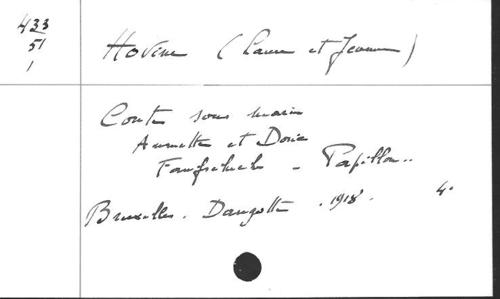 433
51
1
Hovine (Laure et Jeanne)
Contes sous marin
Annette et Doria
- Papillon..
Bruxelles. Dangotte . 1918. 4°